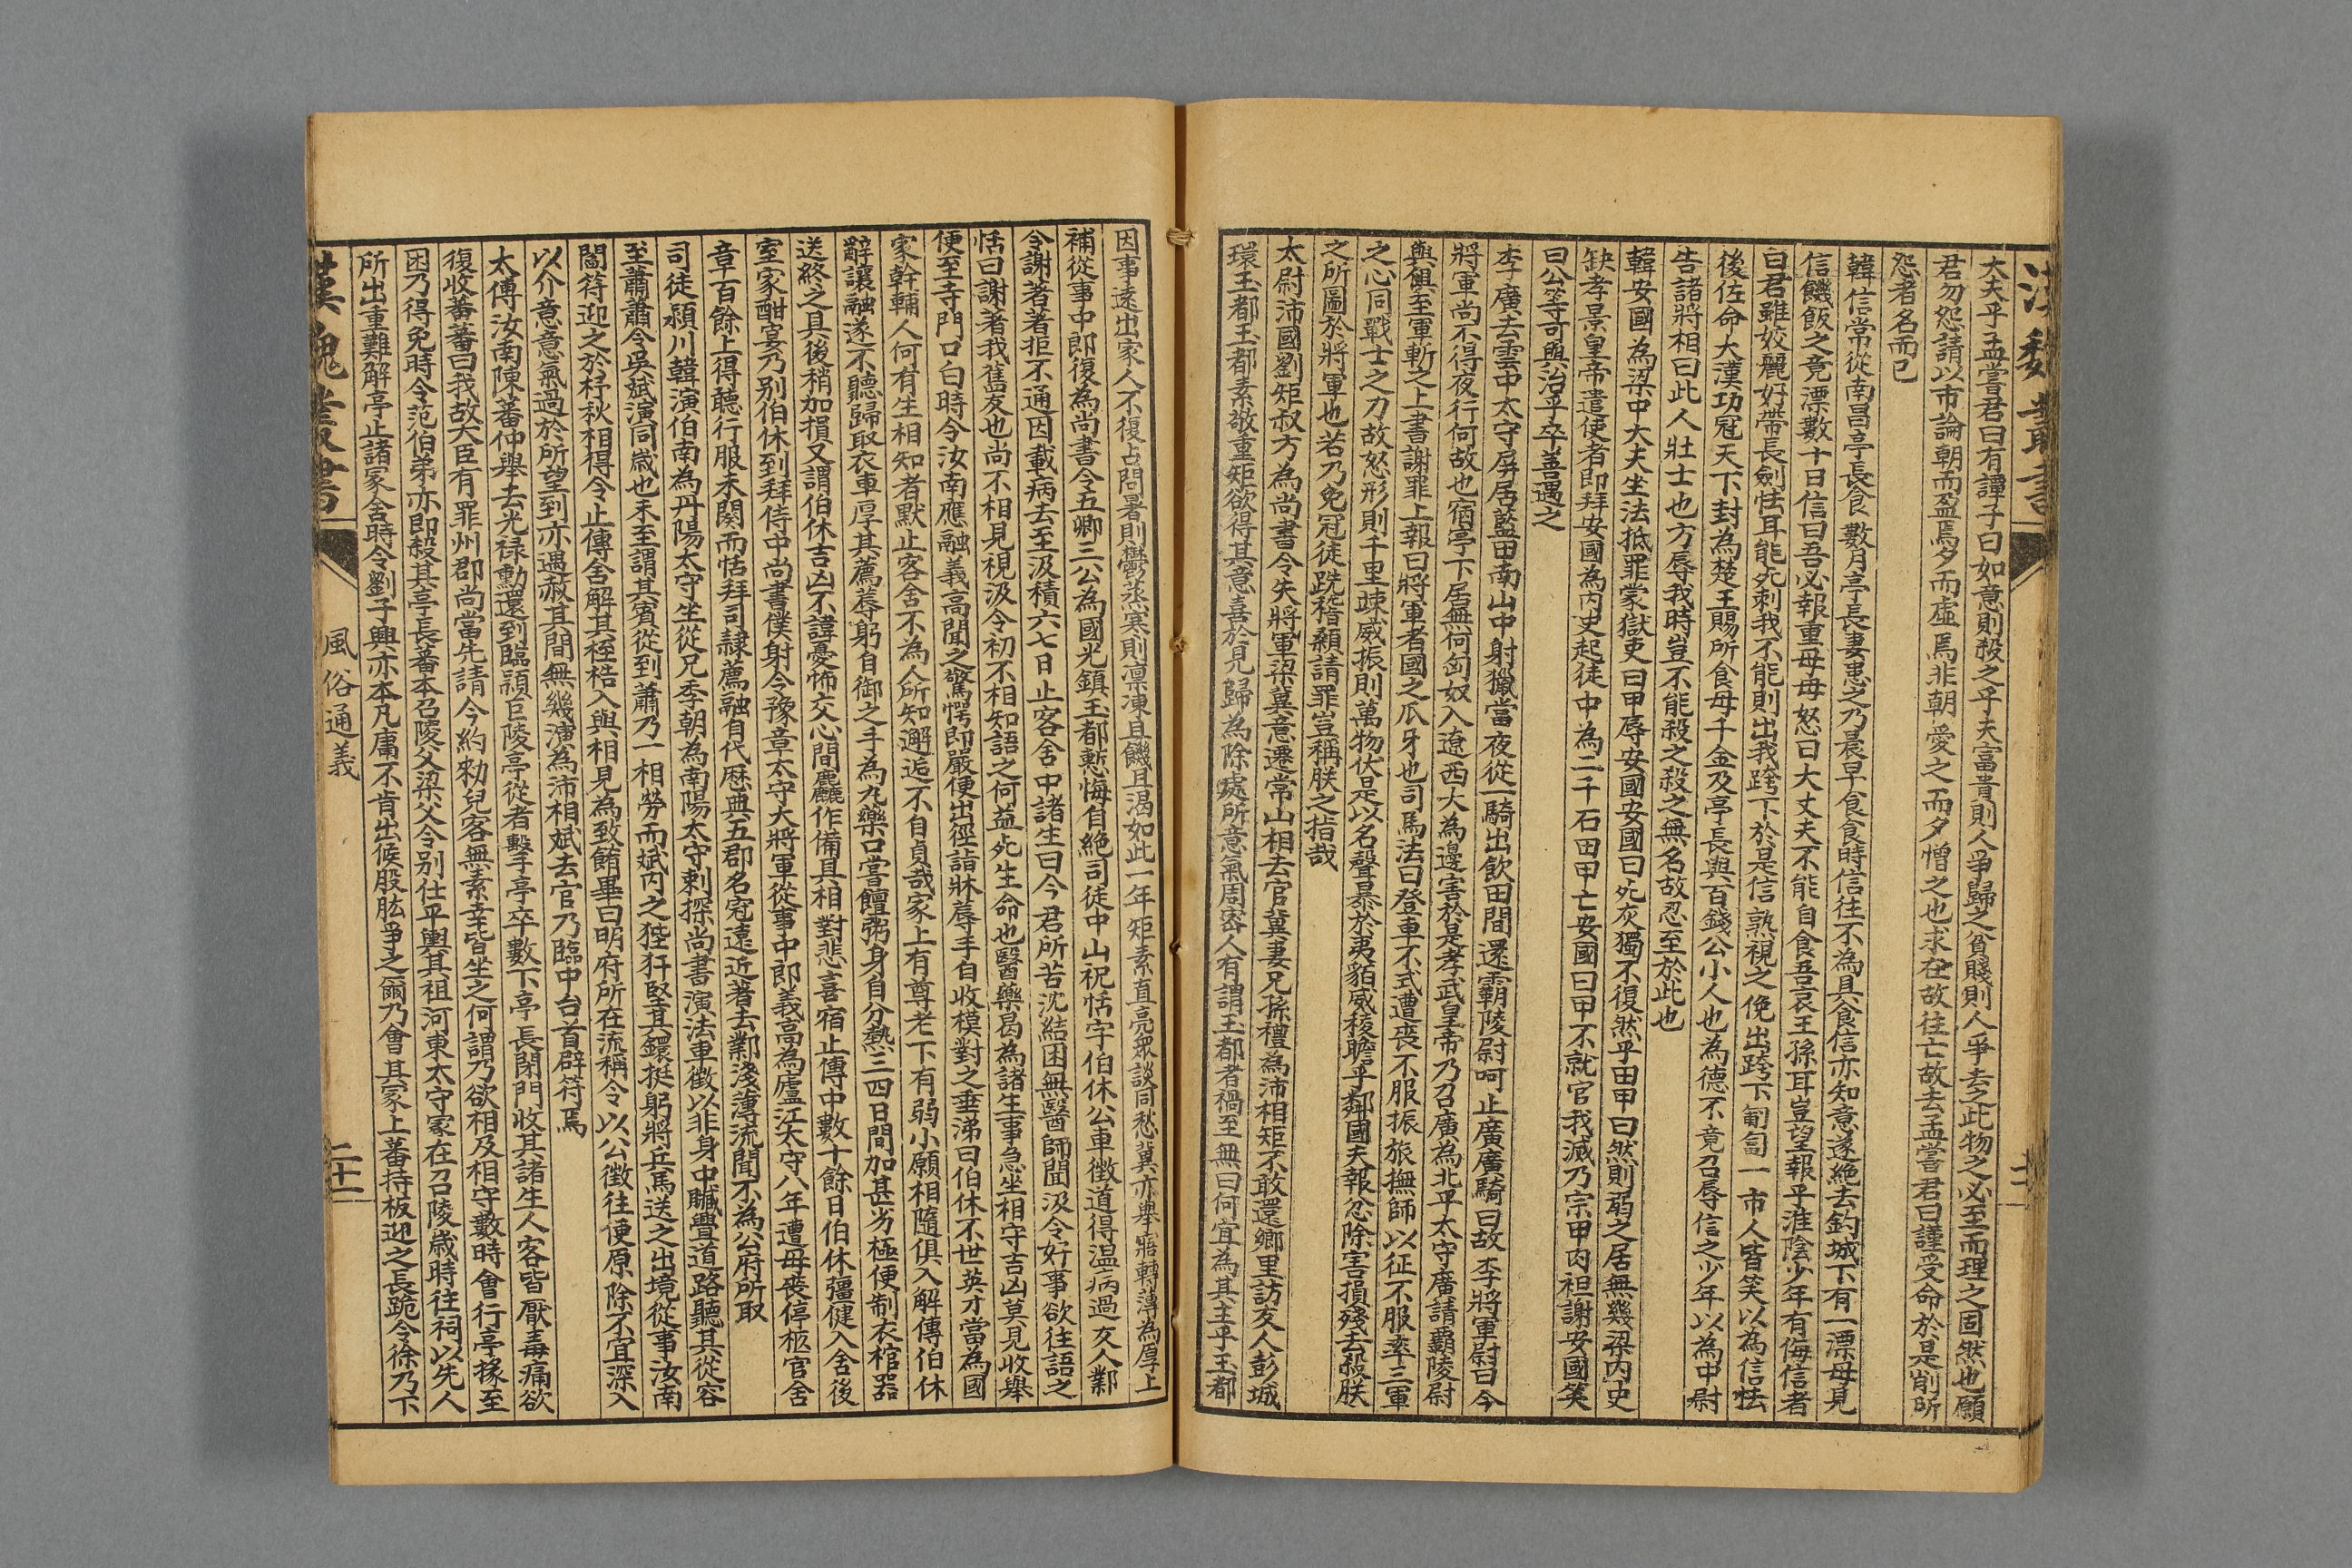 漢魏叢書
大夫乎孟嘗君曰有譚子曰如意則殺之乎夫富貴則人爭歸之貧賤則人爭去之此物之必至而理之固然也願
君勿怨請以市論朝而盈焉夕而虛焉非朝愛之而夕憎之也求在故往亡故去孟嘗君曰謹受命於是削所
怨者名而已
韓信常從南昌亭長食數月亭長妻患之乃晨早食食時信往不為具食信亦知意遂絕去釣城下有一漂母見
信饑飯之竟漂數十日信曰吾必報重母母怒曰大丈夫不能自食吾哀王孫耳豈望報乎淮陰少年有侮信者
曰君雖姣麗好帶長劍怯耳能死刺我不能則出我跨下於是信熟視之俛出跨下匍匐一市人皆笑以為信怯
後佐命大漢功冠天下封為楚王賜所食母千金及亭長與百錢公小人也為德不竟召辱信之少年以為中尉
告諸將相曰此人壯士也方辱我時豈不能殺之殺之無名故忍至於此也
韓安國為梁中大夫坐法抵罪蒙獄吏田甲辱安國安國曰死灰獨不復然乎田甲曰然則弱之居無幾梁內史
缺孝景皇帝遣使者即拜安國為內史起徒中為二千石田甲亡安國曰甲不就官我滅乃宗甲肉袒謝安國笑
曰公等可與治乎卒善遇之
李廣去雲中太守屏居藍田南山中射獵當夜從一騎出飲田間還霸陵尉呵止廣廣騎曰故李將軍尉曰今
將軍尚不得夜行何故也宿亭下居無何匈奴入遼西大為邊害於是孝武皇帝乃召廣為北平太守廣請霸陵尉
與俱至軍斬之上書謝罪上報曰將軍者國之爪牙也司馬法曰登車不式遭喪不服振旅撫師以征不服率三軍
之心同戰士之力故怒形則千里竦威振則萬物伏是以名聲暴於夷貊威稜瞻乎鄰國夫報忿除害損殘去殺朕
之所圖於將軍也若乃免冠徒跣稽顙請罪豈稱朕之指哉
太尉沛國劉矩叔方為尚書令失將軍梁冀意遷常山相去官冀妻兄孫禮為沛相矩不敢還鄉里訪友人彭城
環玉都玉都素敬重矩欲得其意喜於見歸為除處所意氣周密人有謂玉都者禍至無曰何宜為其主乎玉都
因事遠出家人不復占問暑則鬱蒸寒則凜凍且饑且渴如此一年矩素直亮眾談同愁冀亦舉寤轉薄為厚上
補從事中郎復為尚書令五卿三公為國光鎮玉都慙悔自絕司徒中山祝恬字伯休公車徵道得溫病過友人鄴
令謝著著拒不通因載病去至汲積六七日止客舍中諸生曰今君所苦沈結困無醫師聞汲令好事欲往語之
恬曰謝著我舊友也尚不相見視汲令初不相知語之何益死生命也醫藥曷為諸生事急坐相守吉凶莫見收舉
便至寺門口白時令汝南應融義高聞之驚愕即嚴便出徑詣牀蓐手自收模對之垂涕曰伯休不世英才當為國
家幹輔人何有生相知者默止客舍不為人所知邂逅不自貞哉家上有尊老下有弱小願相隨俱入解傳伯休
辭讓融遂不聽歸取衣車厚其薦蓐躬自御之手為丸藥口嘗饘粥身自分熱三四日間加甚劣極便制衣棺器
送終之具後稍加損又謂伯休吉凶不諱憂怖交心間麤作備具相對悲喜宿止傳中數十餘日伯休彊健入舍後
室家酣宴乃別伯休到拜侍中尚書僕射令豫章太守大將軍從事中郎義高為廬江太守八年遭母喪停柩官舍
章百餘上得聽行服未闋而恬拜司隸薦融自代歷典五郡名冠遠近著去鄴淺薄流聞不為公府所取
司徒潁川韓演伯南為丹陽太守坐從兄季朝為南陽太守刺探尚書演法車徵以非身中贓舋道路聽其從容
至蕭蕭令吳斌演同歲也未至謂其賓從到蕭乃一相勞而斌內之狴犴堅其鐶挺躬將兵馬送之出境從事汝南
閻符迎之於杼秋相得令止傳舍解其桎梏入與相見為致餚畢曰明府所在流稱令以公徵往便原除不宜深入
以介意意氣過於所望到亦遇赦其間無幾演為沛相斌去官乃臨中台首辟符焉
太傅汝南陳蕃仲舉去光祿勳還到臨潁巨陵亭從者擊亭卒數下亭長閉門收其諸生人客皆厭毒痛欲
復收蕃蕃曰我故大臣有罪州郡尚當先請今約勑兒客無素幸皆坐之何謂乃欲相及相守數時會行亭掾至
困乃得免時令范伯弟亦即殺其亭長蕃本召陵父梁父令別仕平輿其祖河東太守冢在召陵歲時往祠以先人
所出重難解亭止諸冢舍時令劉子興亦本凡庸不肯出候股肱爭之爾乃會其冢上蕃持板迎之長跪令徐乃下
漢魏叢書
風俗通義
二十一